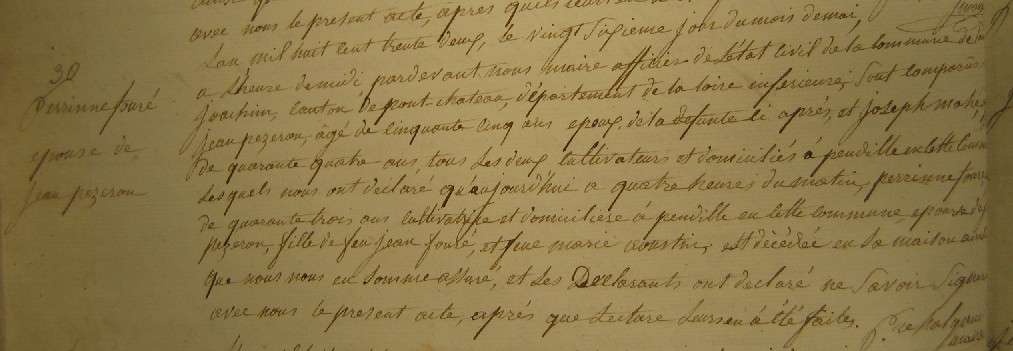 avec nous le present acte, après
L'an mil huit cent trente deux, le vingt sixieme jour du mois de mai,
30
a L'heure de midi pardevant nous maire officier de L'état Civil de la Commune de
perrinne fouré
Joachim, canton de pont chateau, département de la loire inferieure; Sont Comparus
jean pezeron, âgé de Cinquante Cinq ans epoux de la defunte ci après, et joseph mahé,
epouse de
de quarante quatre ans, tous Les deux Cultivateurs et domiciliés à pendille en Cette
jean pezeron
Lesquels nous ont déclaré qu'aujourd'hui a quatre heures du matin, perrinne
de quarante trois ans Cultivatrice et domiciliere à pendille en Cette Commune epouse de
pezeron, fille de feu jean fouré, et feue marie est décédée en Sa maison
que nous nous en Somme assuré, et Les Declarants ont déclaré ne Savoir Signer
avec nous le present acte, après que Lecture Leur en à été faite.